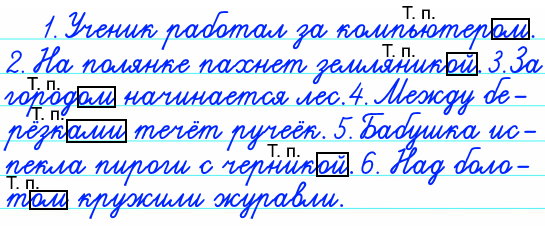 Т. п.
1. Ученик работал за компьютером.
Т. п.
2. На полянке пахнет земляникой. 3. За
Т. п.
городом начинается лес. 4. Между бе-
Т. п.
рёзками течёт ручеёк. 5. Бабушка ис-
Т. п.
пекла пироги с черникой. 6. Над боло-
Т. п.
том кружили журавли.